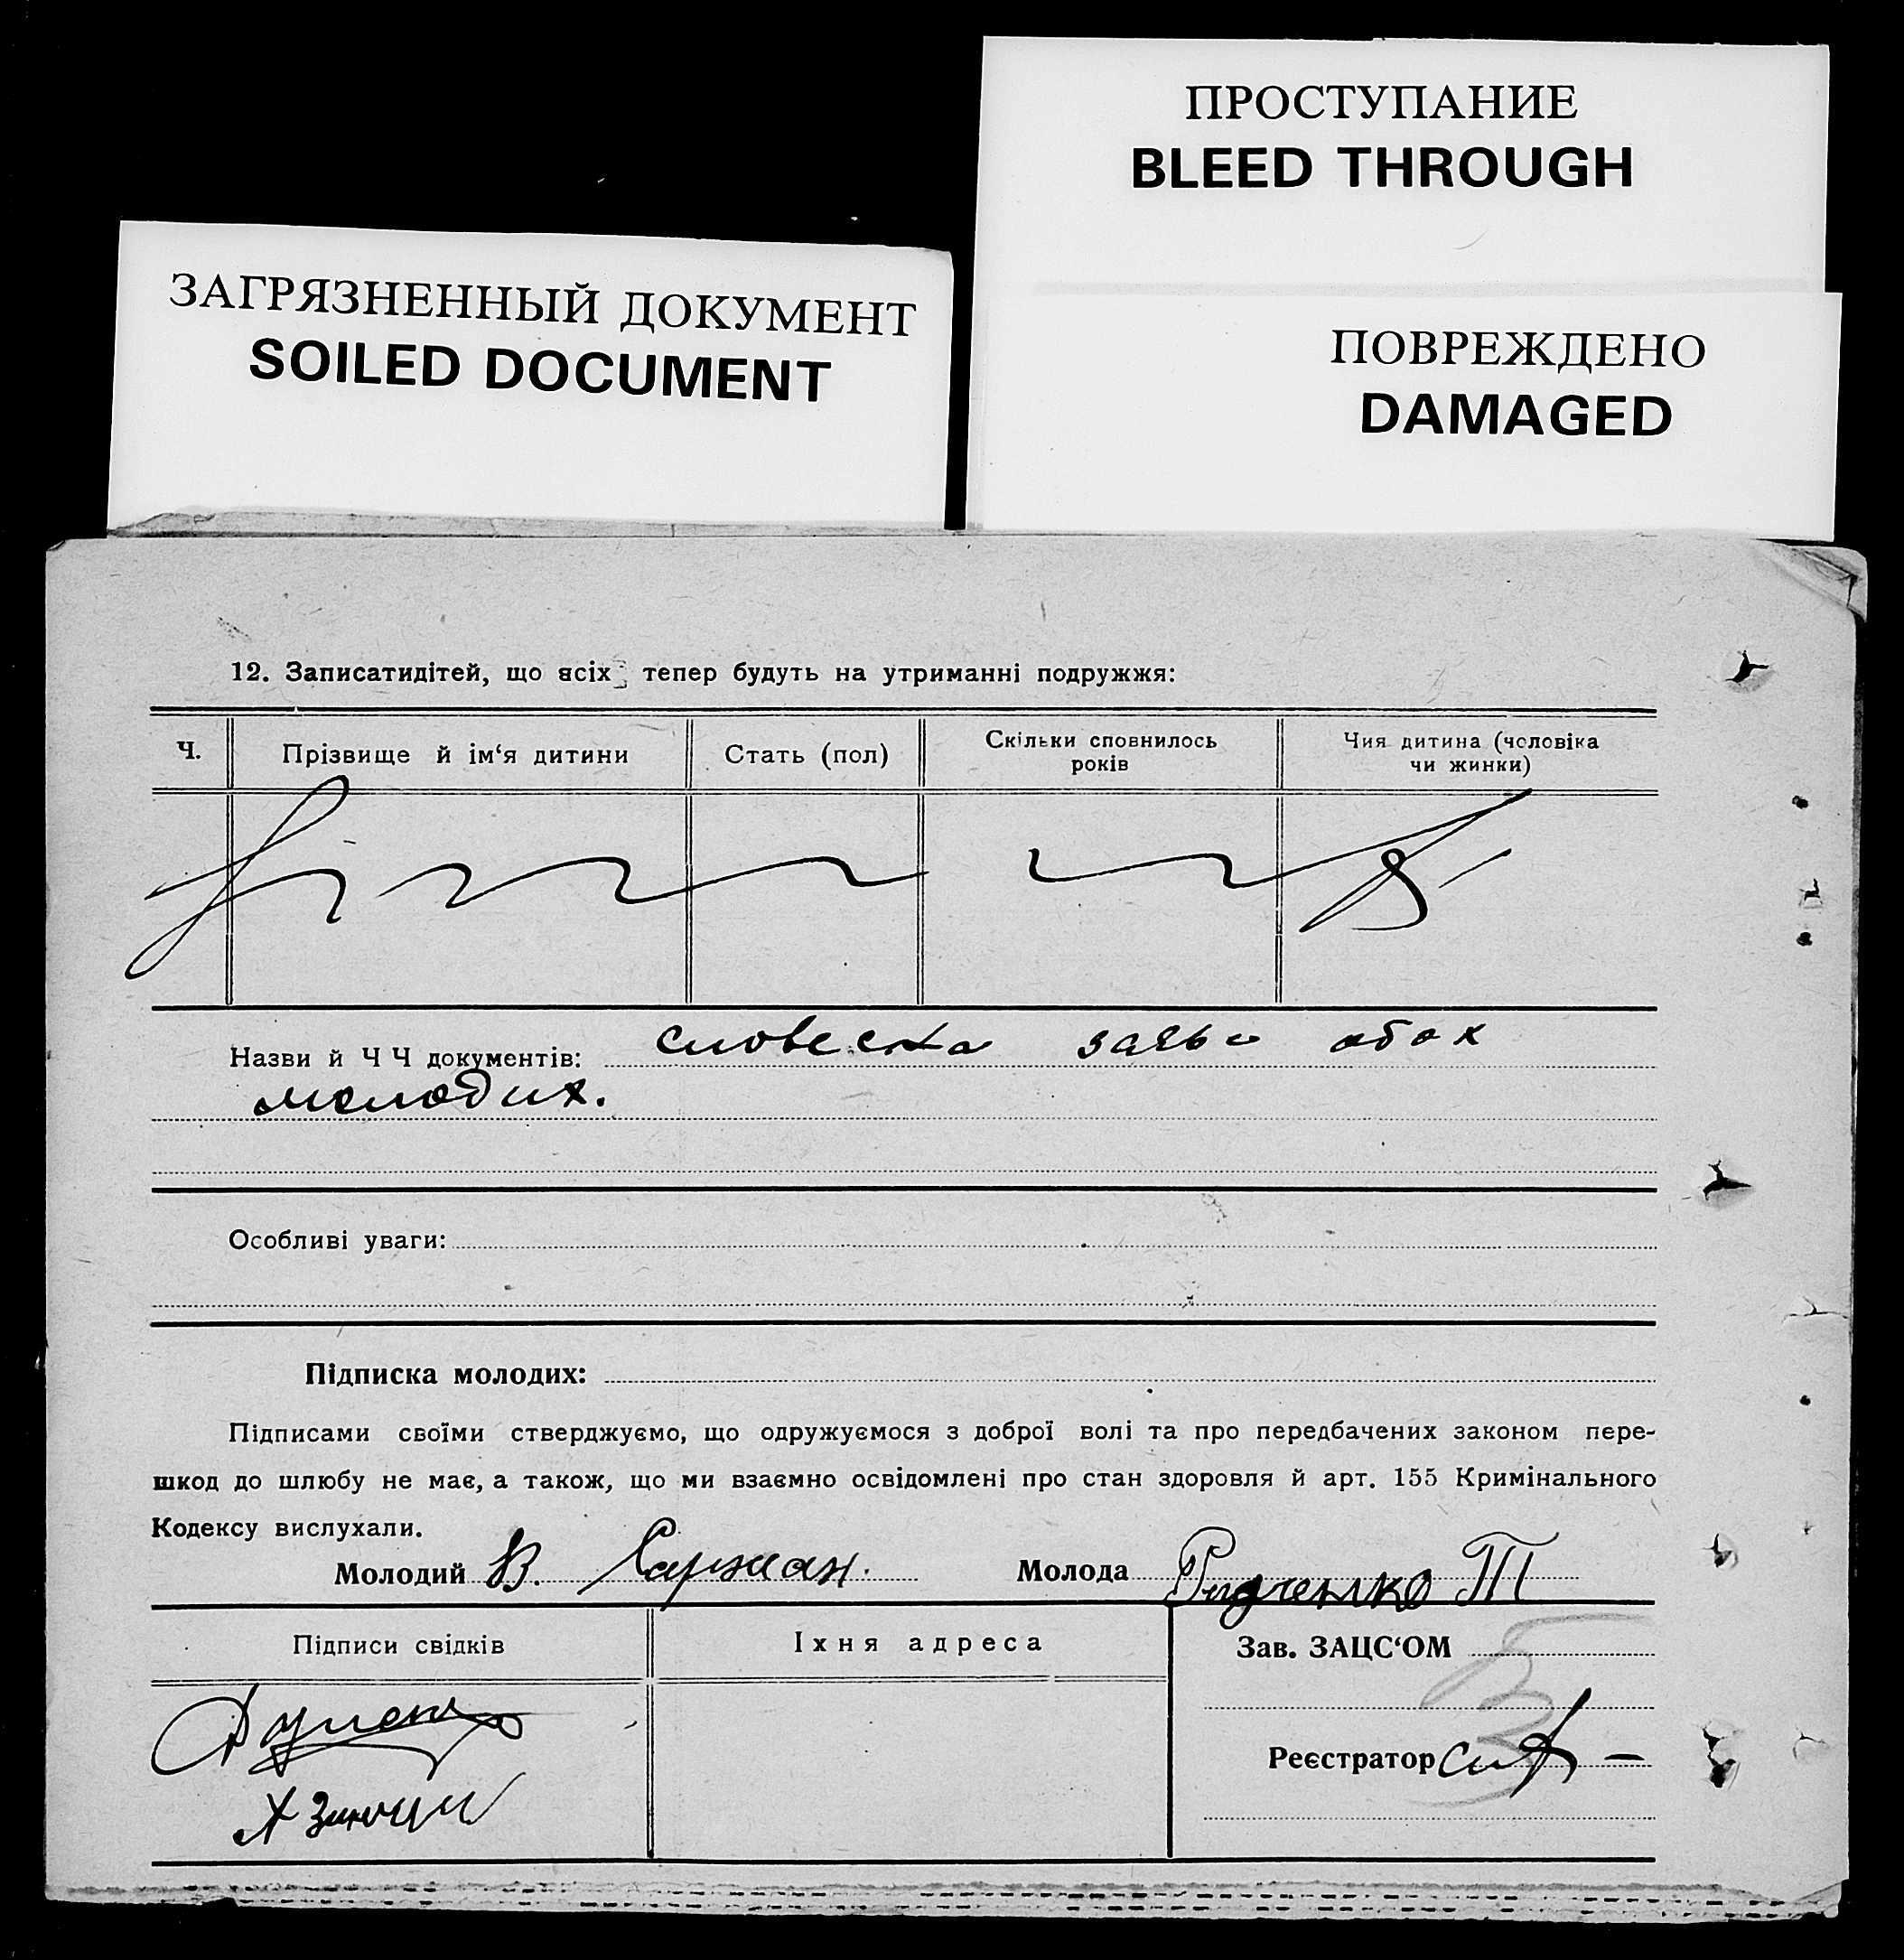 ПРОСТУПАНИЕ
BLEED THROUGH
ЗАГРЯЗНЕННЫЙ ДОКУМЕНТ
SOILED DOCUMENT
ПОВРЕЖДЕНО
DAMAGED
12. Записатидітей, що ясіх тепер будуть на утриманні подружжя:
Ч. Прізвище й ім‘я дитини Стать (пол) Скільки сповнилось років Чия дитина (чоловіка чи жинки)
Назви й Ч Ч документів: словесна заява обох
молодих.
Особливі уваги:
Підписка молодих:
Підписами своїми стверджуємо, що одружуємося з доброї волі та про передбачених законом пере-
шкод до шлюбу не має, а також, що ми взаємно освідомлені про стан здоровля й арт. 155 Кримінального
Кодексу вислухали.
Молодий В. Харман. Молода Радченко Т
Підписи свідків Їхня адреса Зав. ЗАЦС‘ОМ
Реєстратор